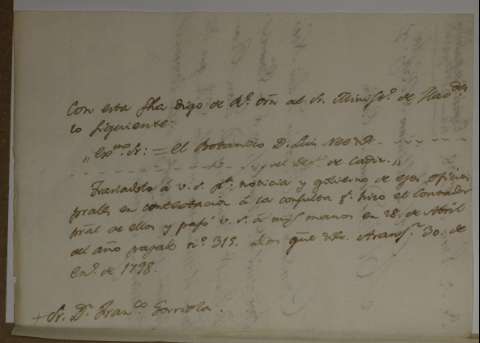 Con esta fha digo de Rl. orn al Sr. Ministro. de Hacda
lo siguiente
"Exmo. Sr: = el Botanico D. Luis Neé &
de Cadiz."
Trasladolo à V. S. pa. noticia y govierno de esas oficinas
grales, en contextacion à la consulta qe. hizo el Contador
gral de ellas y pasó V. S. à mis manos en 28. de Abril
del año pasado nº 315. Dios gue &a. Aranjz. 30. de
En.º de 1798.
+ Sr. Dn. Franco. Gorriola.